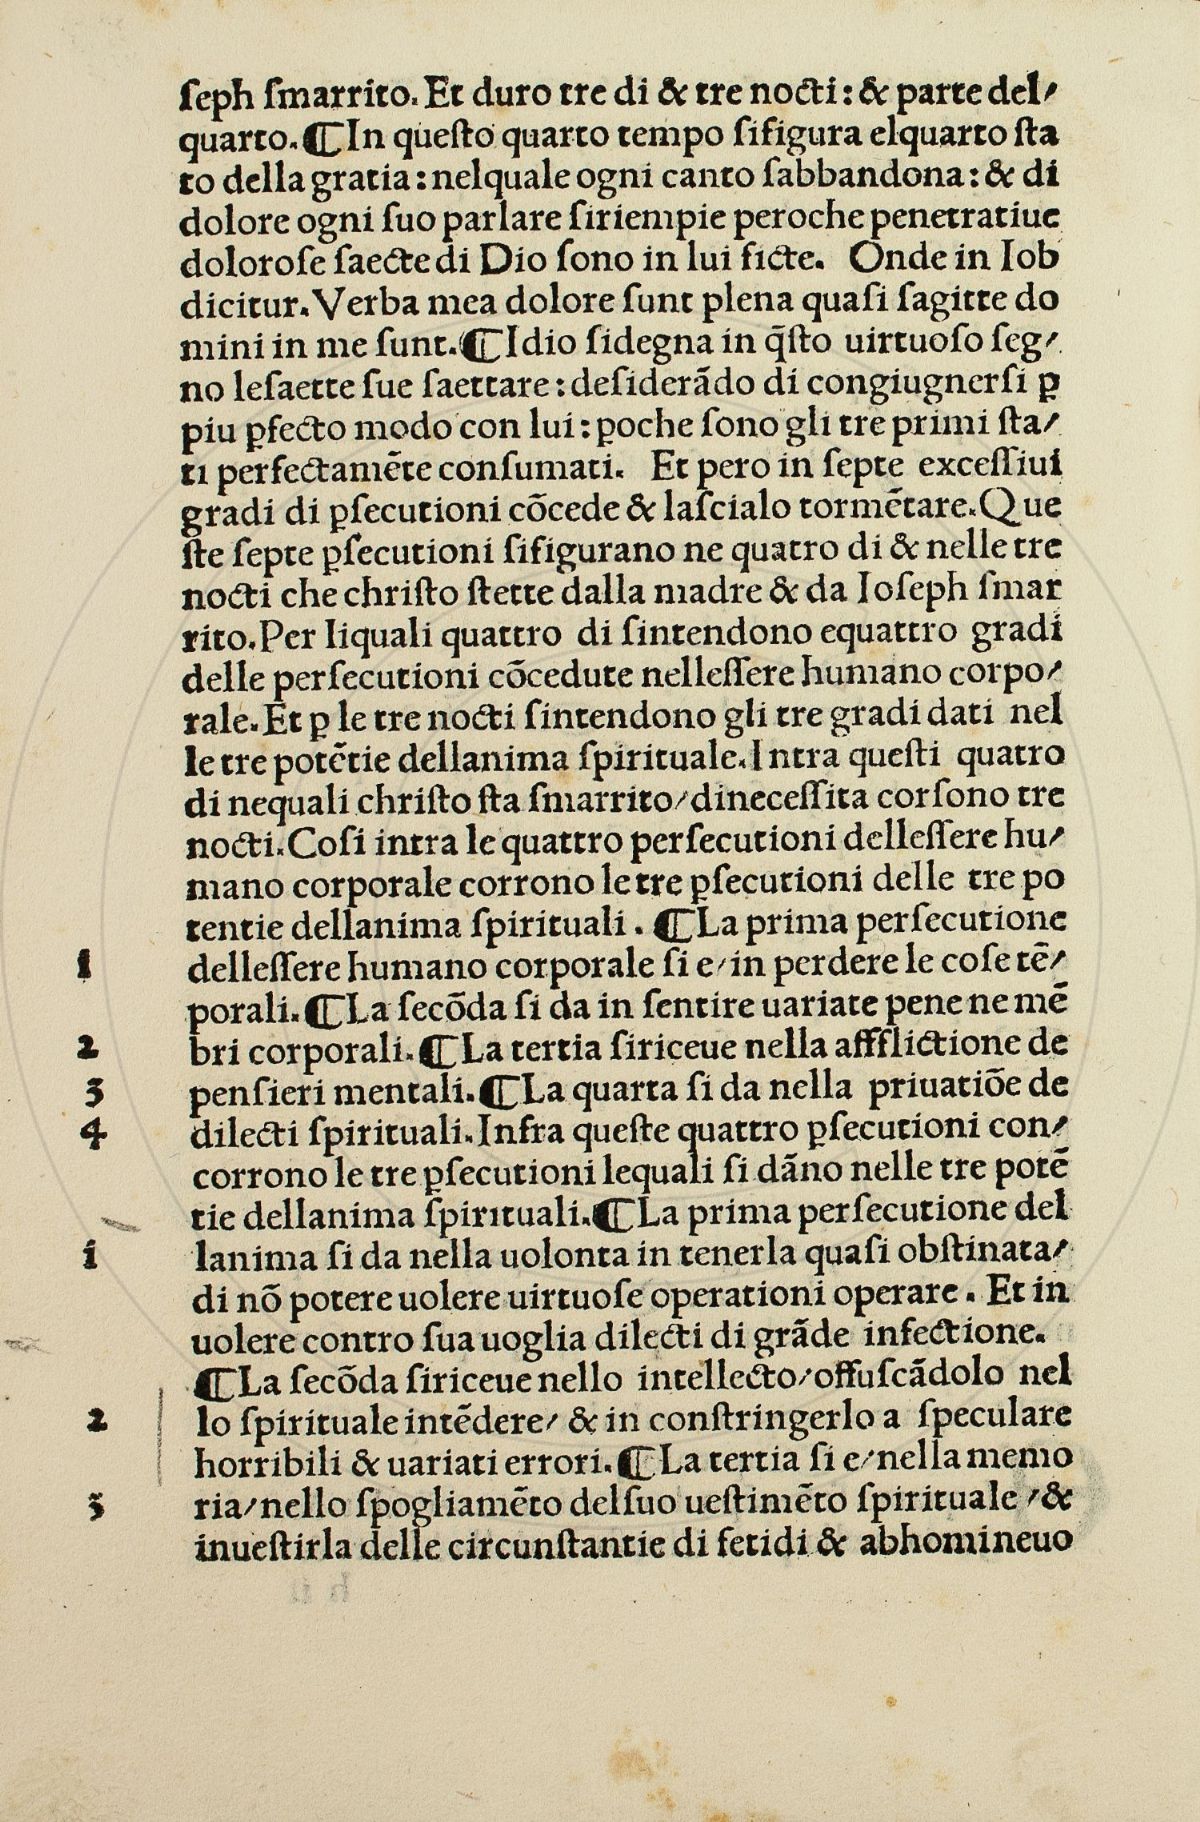 ſeph ſmarrito. Et duro tre di & tre nocti: & parte del/
quarto. ¶ In queſto quarto tempo ſifigura elquarto ſta
to della gratia: nelquale ogni canto ſabbandona: & di
dolore ogni ſuo parlare ſiriempie peroche penetratiue
doloroſe ſaecte di Dio ſono in lui ficte. Onde in Iob
dicitur. Verba mea dolore ſunt plena quaſi ſagitte do
mini in me ſunt. ¶ Idio ſidegna in q̄ſto uirtuoſo ſeg/
no leſaette ſue ſaettare: deſiderādo di congiugnerſi ꝑ
piu ꝑfecto modo con lui: ꝑoche ſono gli tre primi ſta/
ti perfectamēte conſumati. Et pero in ſepte exceſſiui
gradi di ꝑſecutioni cōcede & laſcialo tormētare. Que
ſte ſepte ꝑſecutioni ſifigurano ne quatro di & nelle tre
nocti che chriſto ſtette dalla madre & da Ioſeph ſmar
rito. Per liquali quattro di ſintendono equattro gradi
delle perſecutioni cōcedute nelleſſere humano corpo/
rale. Et ꝑ le tre nocti ſintendono gli tre gradi dati nel
le tre potētie dellanima ſpirituale. Intra queſti quatro
di nequali chriſto ſta ſmarrito/dineceſſita corſono tre
nocti. Coſi intra le quattro perſecutioni delleſſere hu/
mano corporale corrono le tre ꝑſecutioni delle tre po
tentie dellanima ſpirituali. ¶ La prima perſecutione
1 delleſſere humano corporale ſi e/in perdere le coſe tē/
porali. ¶ La ſecōda ſi da in ſentire uariate pene ne mē
2 bri corporali. ¶ La tertia ſiriceue nella affflictione de
3 penſieri mentali. ¶ La quarta ſi da nella priuatiōe de
4 dilecti ſpirituali. Infra queſte quattro ꝑſecutioni con/
corrono le tre ꝑſecutioni lequali ſi dāno nelle tre potē
tie dellanima ſpirituali. ¶ La prima perſecutione del
1 lanima ſi da nella uolonta in tenerla quaſi obſtinata/
di nō potere uolere uirtuoſe operationi operare. Et in
uolere contro ſua uoglia dilecti di grāde infectione.
¶ La ſecōda ſiriceue nello intellecto/offuſcādolo nel
2 lo ſpirituale intēdere/ & in conſtringerlo a ſpeculare
horribili & uariati errori. ¶ La tertia ſi e/nella memo
3 ria/nello ſpogliamēto delſuo ueſtimēto ſpirituale /&
inueſtirla delle circunſtantie di fetidi & abhomineuo